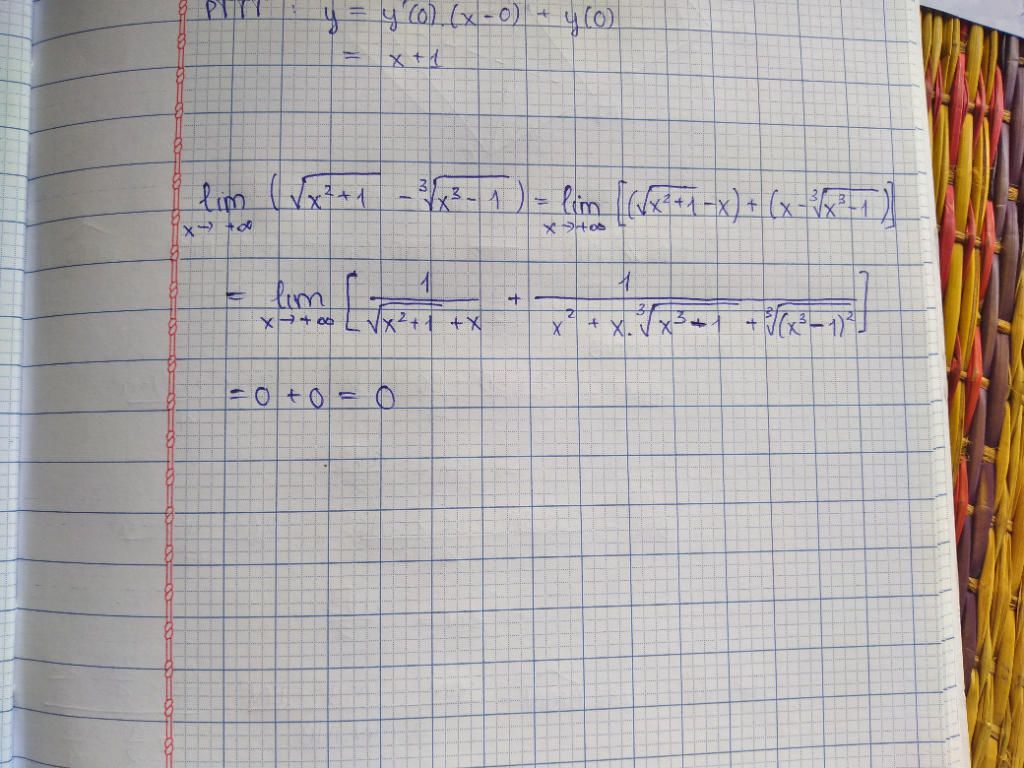 PTTT : y = y'(0).(x-0) + y(0)
= x+1
lim x→+∞ (√(x²+1) - ∛(x³-1)) = lim x→+∞ [(√(x²+1) - x) + (x - ∛(x³-1))]
= lim x→+∞ [1/(√(x²+1) + x) + 1/(x² + x.∛(x³-1) + ∛((x³-1)²))]
= 0 + 0 = 0